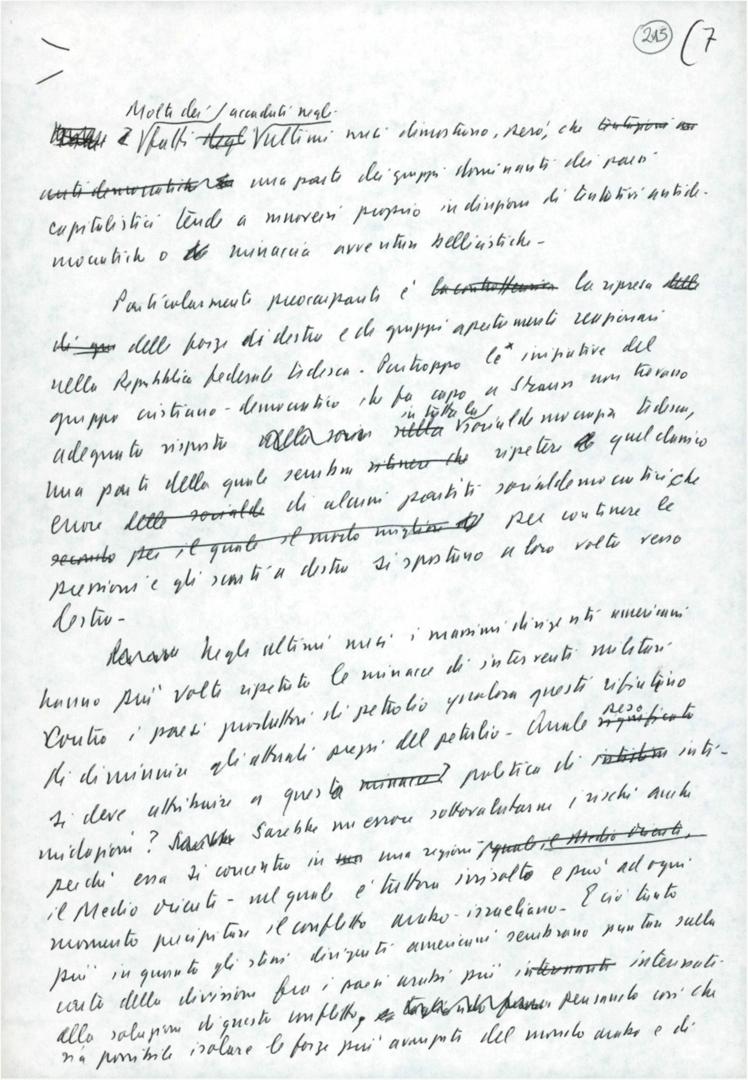 213 (7
Molti dei accaduti negli
fatti degli ultimi mesi dimostrano, però, che tentazioni
antidemocratiche una parte dei gruppi dominanti dei paesi
capitalistici tende a muoversi proprio in direzione di tentativi antide-
mocratiche o di minaccia avventure bellicistiche -
Particolarmente preoccupante è la controffensiva la ripresa delle
delle forze di destra e di gruppi apertamente reazionari
nella Repubblica federale tedesca - Purtroppo le* iniziative del
gruppo cristiano-democratico che fa capo a Strauss non trovano
in tutta la
adeguata risposta nella socialdemocrazia tedesca,
una parte della quale sembra ritenere che ripetere quel classico
errore delle socialde di alcuni partiti socialdemocratici, che
secondo per il quale il modo migliore per contenere le
pressioni e gli scarti a destra si spostano a loro volta verso
destra -
Negli ultimi mesi i massimi dirigenti americani
hanno più volte ripetuto le minacce di interventi militari
contro i paesi produttori di petrolio qualora questi rifiutino
peso
di diminuire gli attuali prezzi del petrolio - Quale significato
si deve attribuire a questa minacce? politica di inti-
midazioni? Sarebbe Sarebbe un errore sottovalutarne i rischi anche
perché essa si concentra in una regione quale il Medio Oriente,
il Medio oriente - nel quale è tuttora irrisolto e può ad ogni
momento precipitare il conflitto arabo-israeliano - E ciò tanto
più in quanto gli stessi dirigenti americani sembrano puntare sulla
carta della divisione fra i paesi arabi più interessati
alla soluzione di questo conflitto, pensando così che
sia possibile isolare le forze più avanzate del mondo arabo e di